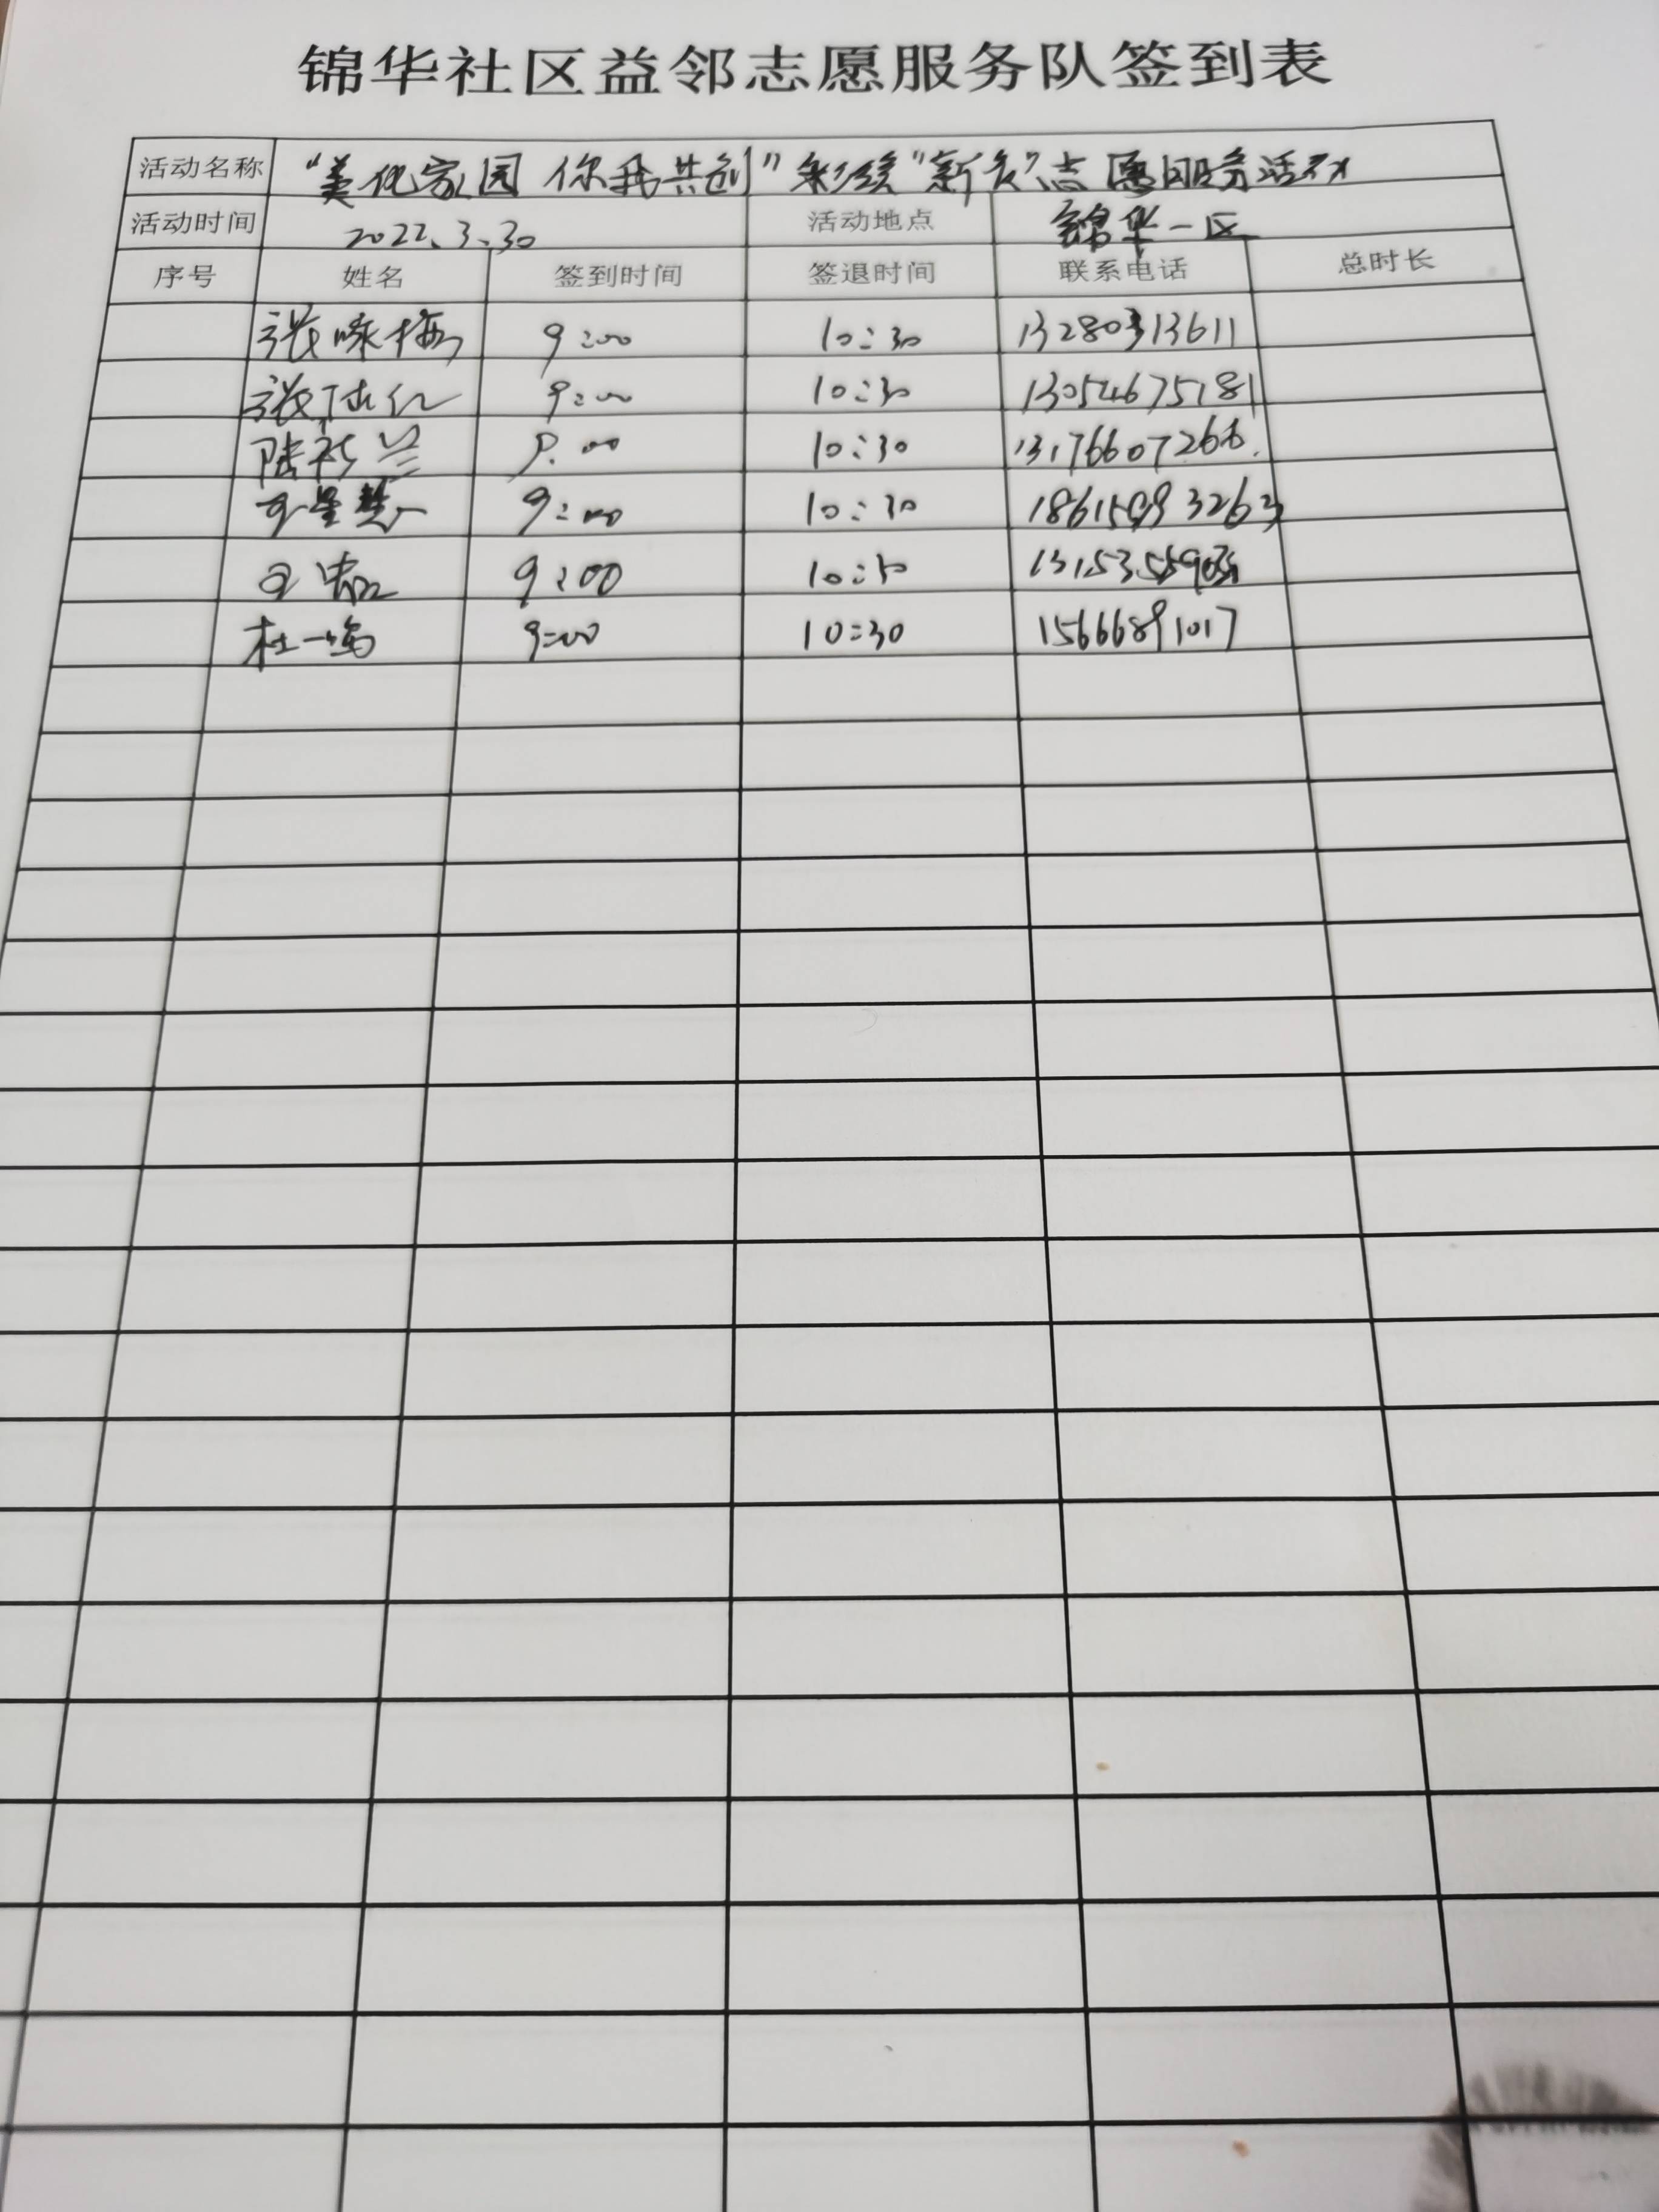 锦华社区益邻志愿服务队签到表
活动名称 “美化家园 你我共创”彩绘“新衣”志愿服务活动
活动时间 2022.3.30 活动地点 锦华一区
序号 姓名 签到时间 签退时间 联系电话 总时长
张咏梅 9:00 10:30 13280313611
张 红 9:00 10:30 13054675181
陆 兰 9:00 10:30 13176607266
9:00 10:30
9:00 10:30
杜一鸣 9:00 10:30 15666891017